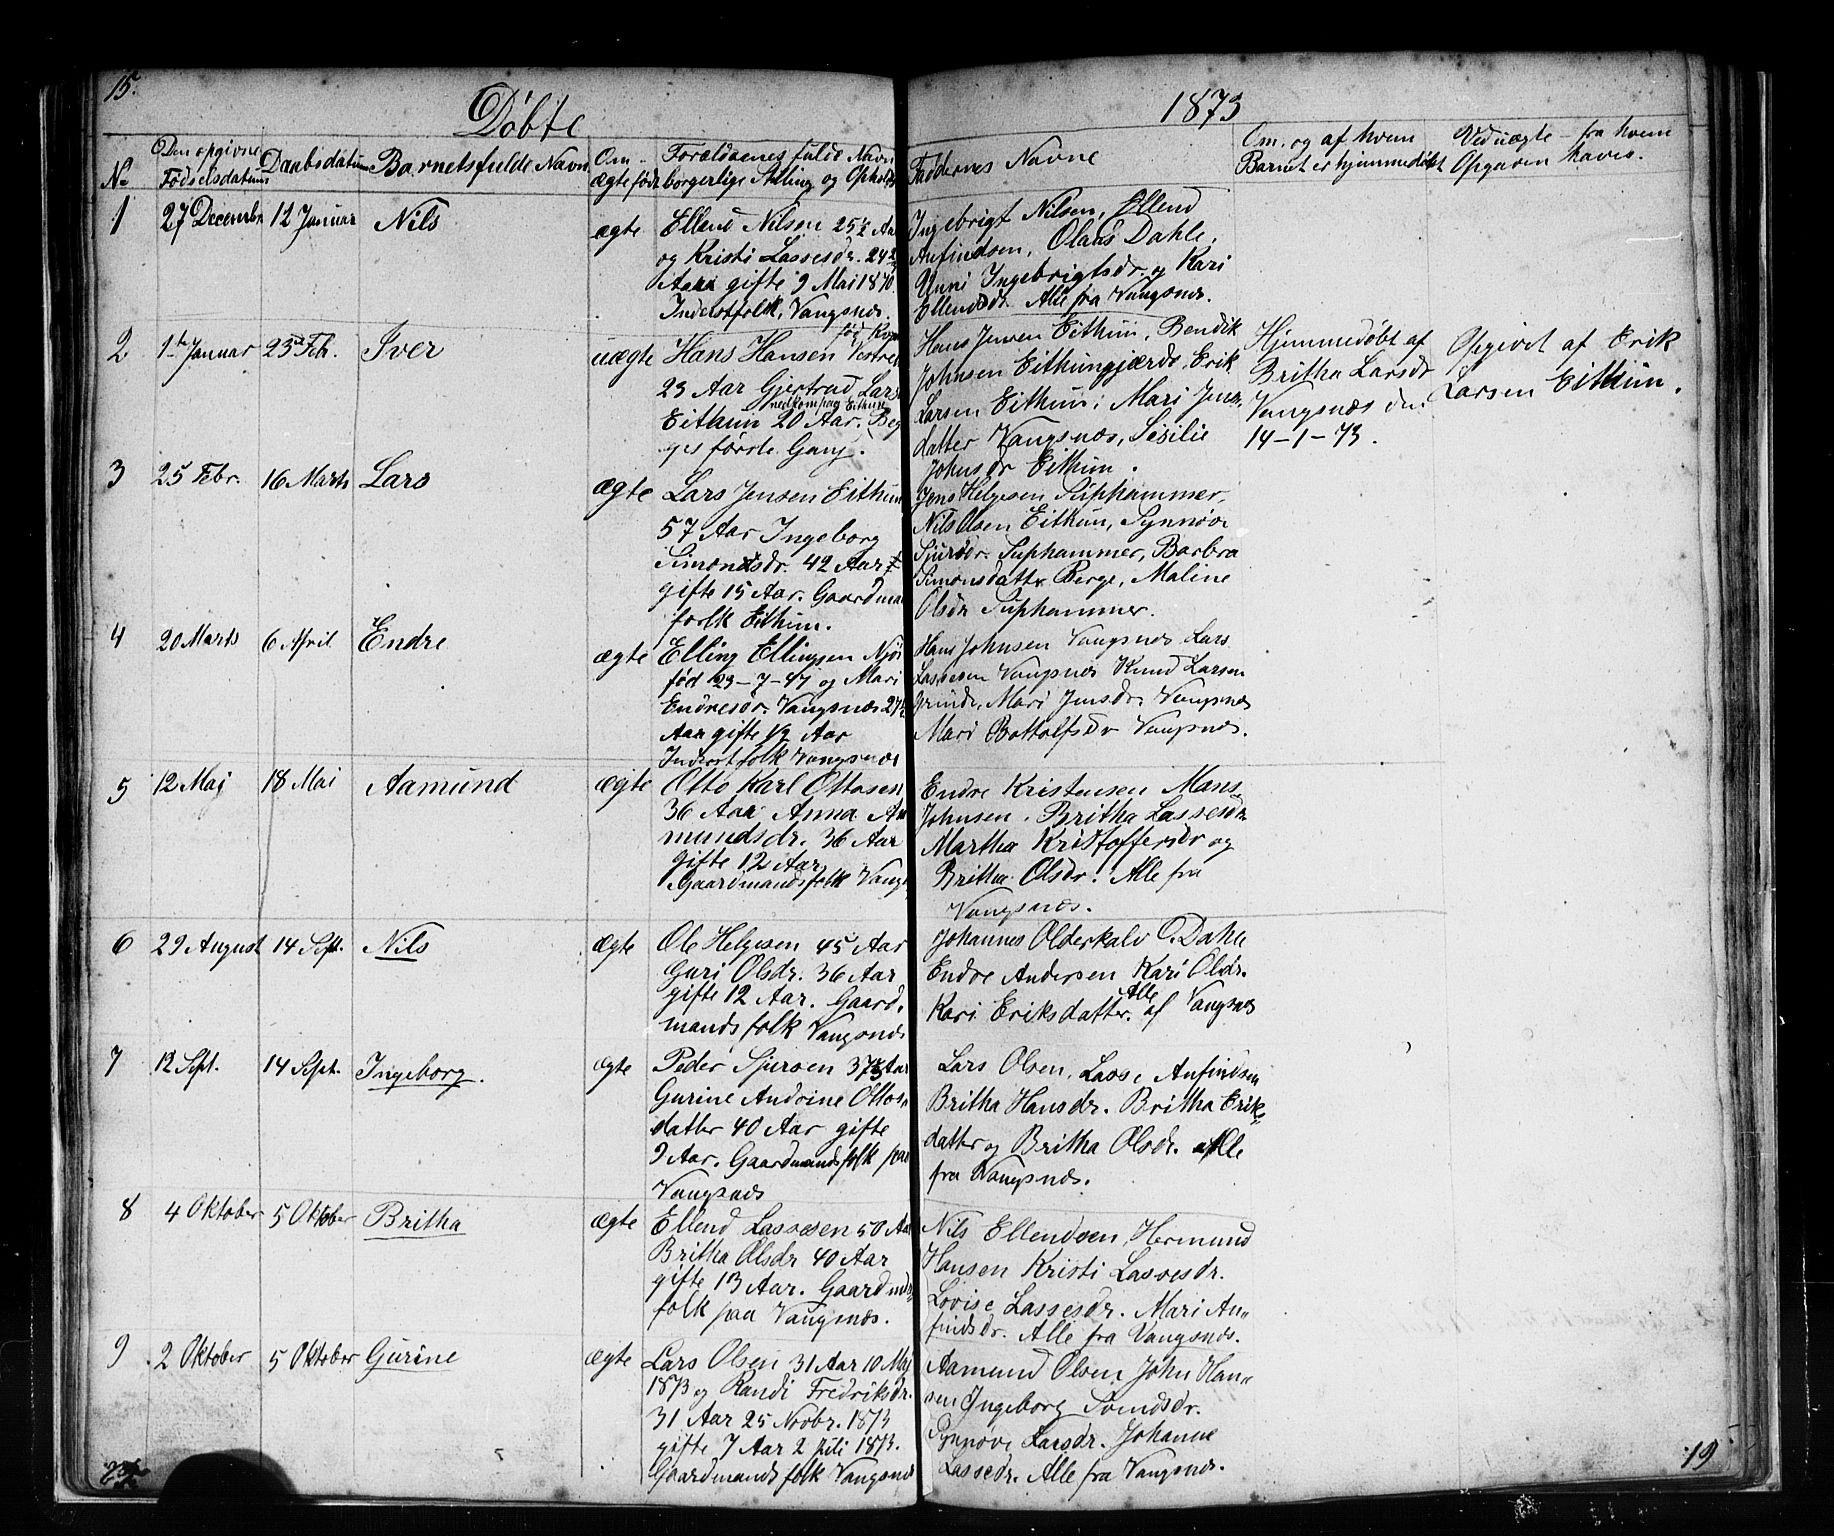 15.
Döbte
1873
No
Den opgivne Födselsdatum
Daabsdatum
Barnets fulde Navn
Om ægte født
Forældrenes fulde Navn
borgerlige Stilling og Ophold
Faddernes Navne
Om, og af hvem
Barnet er hjemmedøbt
Ved uægte - fra hvem
Opgaven haves.
1
27 December
12 Januar
Nils
ægte
Ellend Nilsen 25½ Aar
og Kristi Lassesdr. 24½
Aar gifte 9 Mai 1870.
Inderstfolk, Vangsnæs.
Ingebrigt Nilsen, Ellend
Anfindsen, Olaus Dahle,
Unni Ingebrigtsdr. og Kari
Ellendsdr. Alle fra Vangsnæs.
2
1ste Januar
23de Feb.
Iver
uægte
Hans Hansen
23 Aar Gjertrud Lars
Eithun 20 Aar.
første Gang.
Hans Jensen Eithun, Bendik
Johnsen Eithungjærde, Erik
Larsen Eithun; Mari Jens
datter Vangsnæs, Sisilie
Johnsdr Eithun.
Hjemmedöbt af
Britha Larsdr
Vangsnæs den
14-1-73.
Opgivet af Erik
Larsen Eithun.
3
25 Febr.
16 Marts
Lars
ægte
Lars Jensen Eithun
57 Aar Ingeborg
Simonsdr. 42 Aar
gifte 15 Aar. Gaardman
folk Eithun.
Jens Helgesen Suphammer,
Nils Olsen Eithun, Synnöve
Sjursdr. Suphammer, Barbra
Simonsdatter Berge, Maline
Olsdr Suphammer.
4
20 Marts
6 April
Endre
ægte
Elling Ellingsen Njös
född 23-7-47 og Mari
Endresdr. Vangsnæs 27½
Aar gifte ½ Aar
Inderstfolk Vangsnæs
Hans Johnsen Vangsnæs Lars
Lassesen Vangsnæs Knud Larsen
Grinde, Mari Jensdr. Vangsnæs
Mari Bottolfsdr Vangsnæs.
5
12 Mai
18 Mai
Aamund
ægte
Otto Karl Ottosen
36 Aar Anna Aa
mundsdr. 36 Aar
gifte 12 Aar
Gaardmandsfolk Vangs
Endre Kristensen Mons
Johnsen. Britha Lassesdr
Martha Kristoffersdr og
Britha Olsdr. Alle fra
Vangsnæs.
6
29 August
14 Sept.
Nils
ægte
Ole Helgesen 45 Aar
Guri Olsdr. 36 Aar
gifte 12 Aar. Gaard-
mandsfolk Vangsnæs
Johannes Olderkalv O. Dahle
Endre Andersen Kari Olsdr.
Kari Eriksdatter. Alle af Vangsnæs
7
12 Sept.
14 Sept.
Ingeborg.
ægte
Peder Sjursen 37 Aar
Gurine Andrine Ottos
datter 40 Aar gifte
9 Aar. Gaardmandsfolk paa
Vangsnæs
Lars Olsen, Lasse Anfindsen
Britha Hansdr. Britha Erik-
datter og Britha Olsdr. Alle
fra Vangsnæs.
8
4 Oktober
5 Oktober
Britha
ægte
Ellend Lassesen 50 Aar
Britha Olsdr 40 Aar
gifte 13 Aar. Gaardmds
folk paa Vangsnæs.
Nils Ellendsen, Hermund
Hansen Kristi Lassesdr.
Lovise Lassesdr. Mari An-
findsdr. Alle fra Vangsnæs.
9
2 Oktober
5 Oktober
Gurine
ægte
Lars Olsen 31 Aar 10 Maj
1873 og Randi Fredriksdr.
31 Aar 25 Novbr. 1873
gifte 7 Aar 2 Juli 1873.
Gaardmandsfolk Vangsnæs
Aamund Olsen John Han-
sen Ingeborg Svendsdr.
Synnöve Larsdr. Johanne
Lassedr. Alle fra Vangsnæs.
19